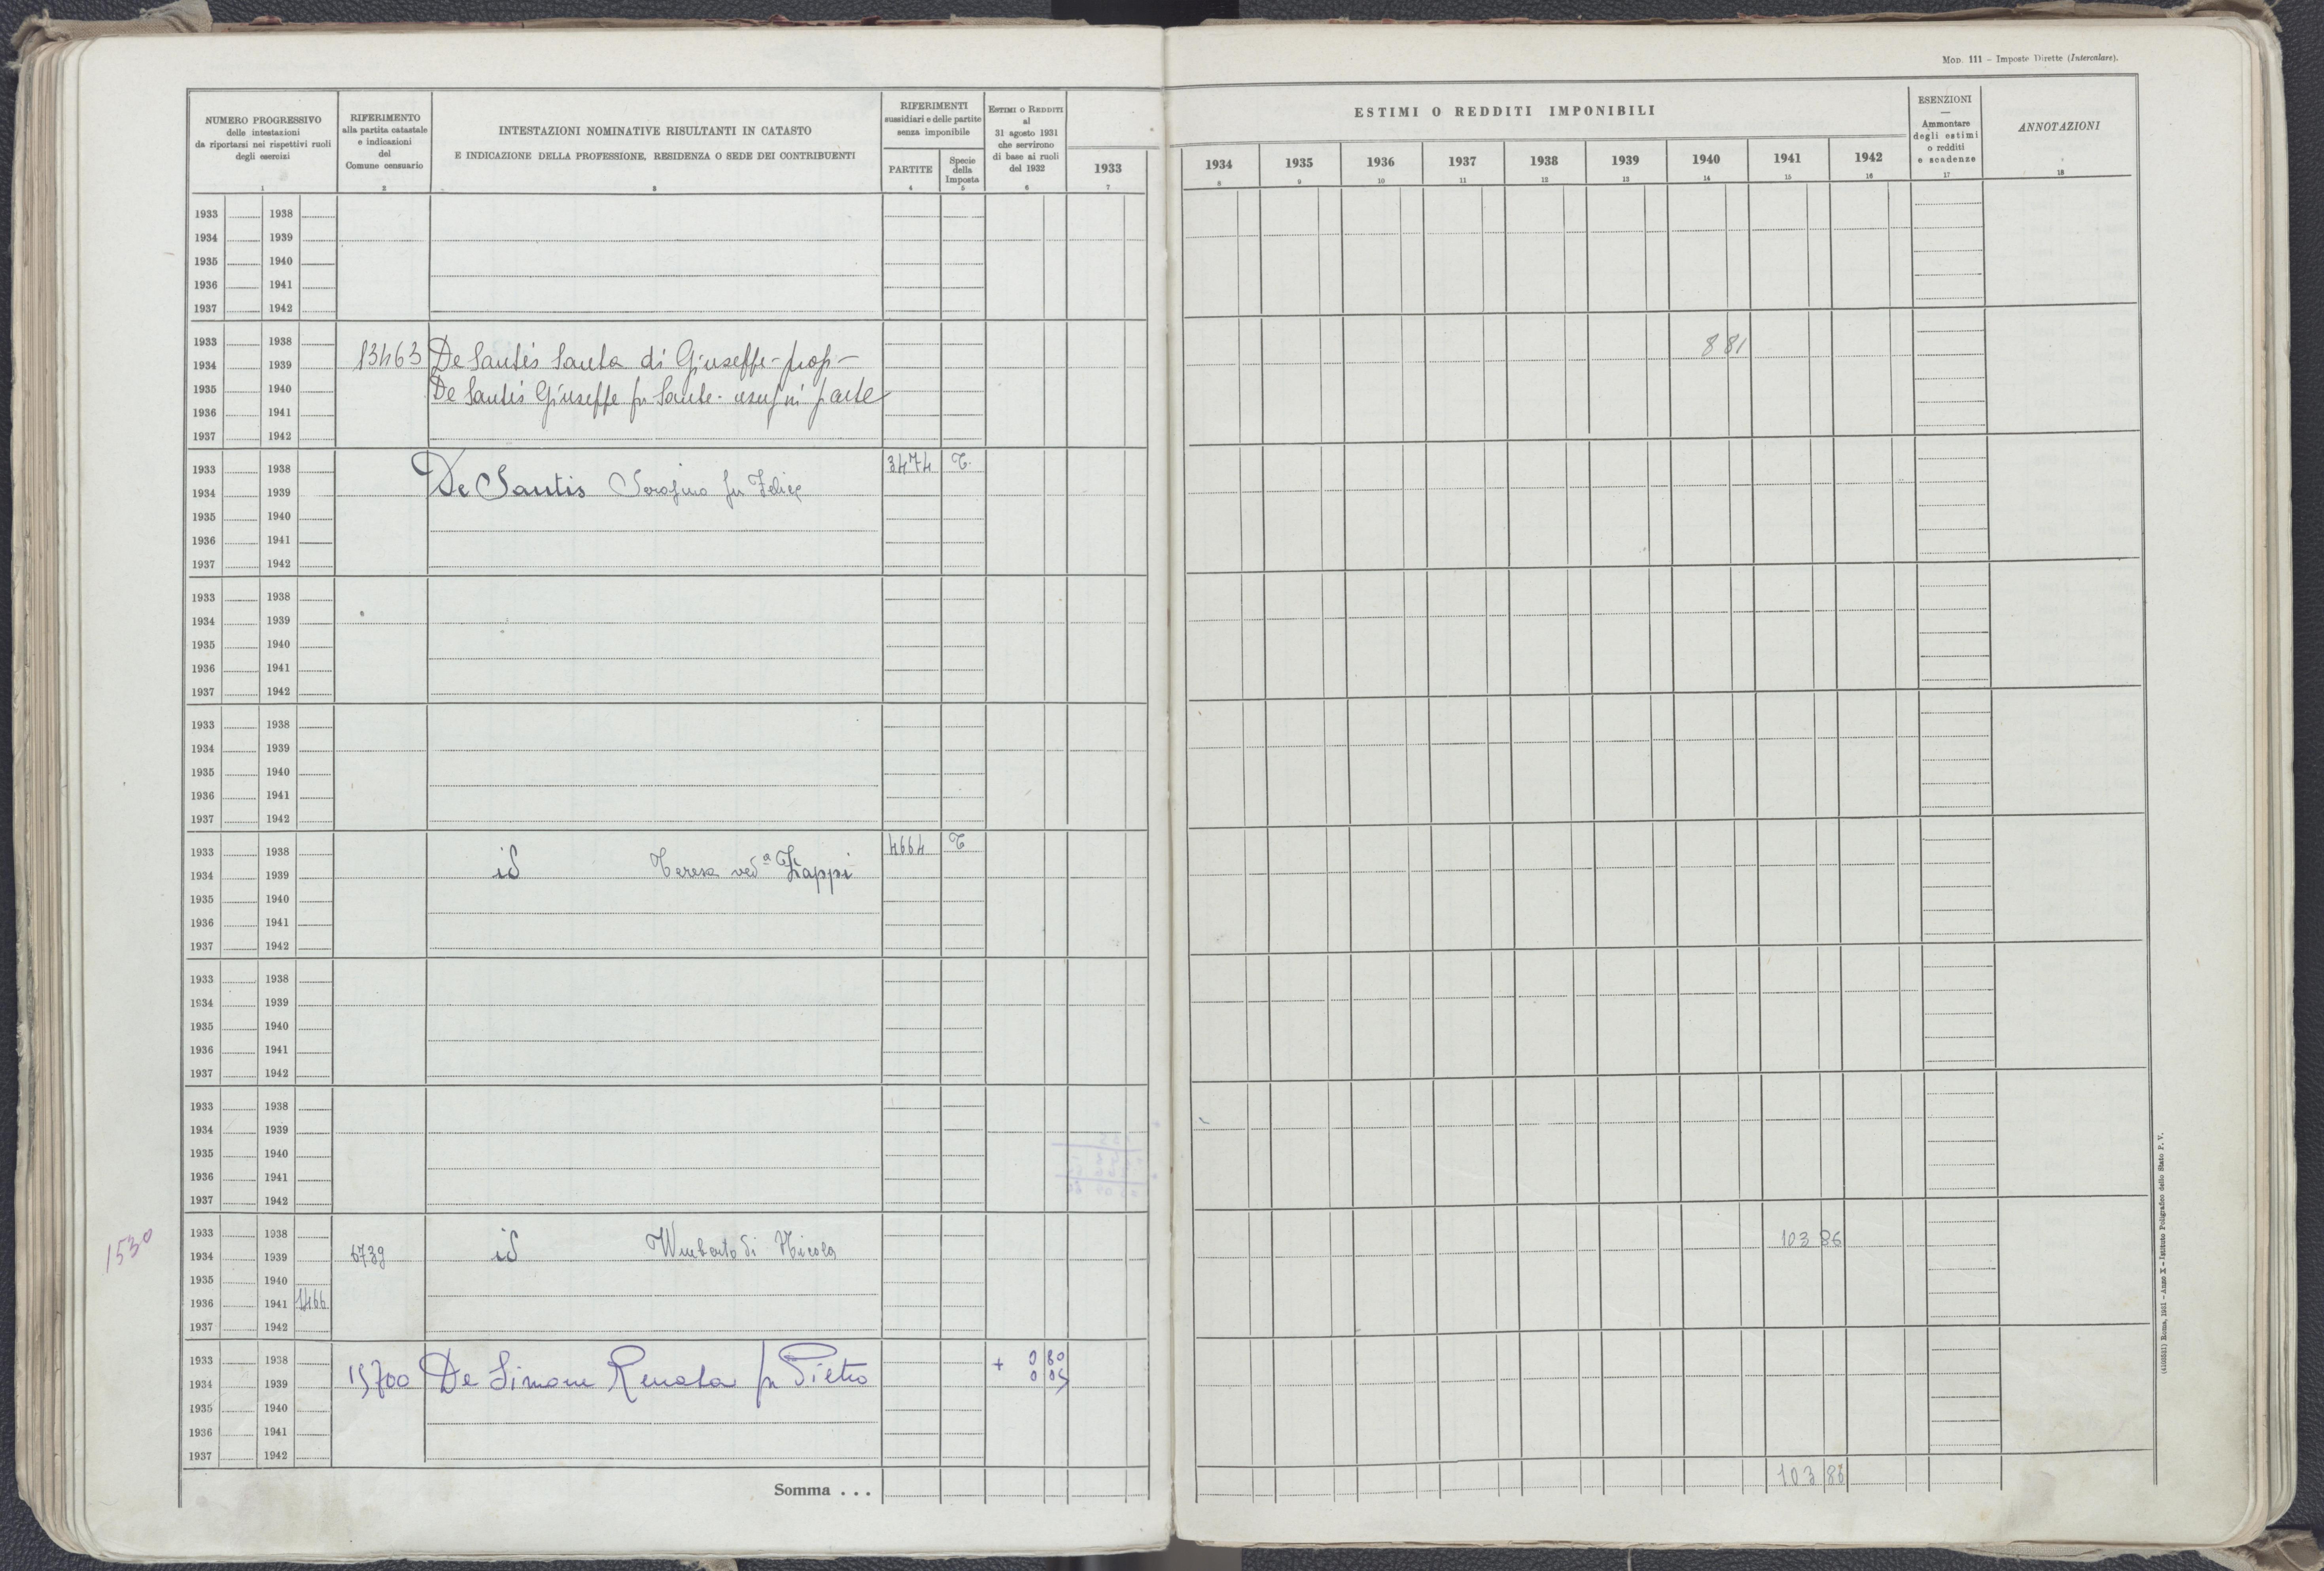 Mod. 111 – Imposte Dirette (Intercalare).
NUMERO PROGRESSIVO
delle intestazioni
da riportarsi nei rispettivi ruoli
degli esercizi
1
RIFERIMENTO
alla partita catastale
e indicazioni
del
Comune censuario
2
INTESTAZIONI NOMINATIVE RISULTANTI IN CATASTO
E INDICAZIONE DELLA PROFESSIONE, RESIDENZA O SEDE DEI CONTRIBUENTI
3
RIFERIMENTI
sussidiari e delle partite
senza imponibile
PARTITE
4
Specie
della
Imposta
5
Estimi o Redditi
al
31 agosto 1931
che servirono
di base ai ruoli
del 1932
6
1933
7
ESTIMI O REDDITI IMPONIBILI
1934 1935 1936 1937 1938 1939 1940 1941 1942
8 9 10 11 12 13 14 15 16
ESENZIONI
—
Ammontare
degli estimi
o redditi
e scadenze
17
ANNOTAZIONI
18
1933 1938
1934 1939
1935 1940
1936 1941
1937 1942
1933 1938 8 81
1934 1939 13463 De Santis Santa di Giuseppe – prop –
1935 1940 De Santis Giuseppe fu Sante - usuf in parte
1936 1941
1937 1942
1933 1938 3474 T.
1934 1939 De Santis Serafino fu Felice
1935 1940
1936 1941
1937 1942
1933 1938
1934 1939
1935 1940
1936 1941
1937 1942
1933 1938
1934 1939
1935 1940
1936 1941
1937 1942
1933 1938 4664 T
1934 1939 id Teresa ved.a Zappi
1935 1940
1936 1941
1937 1942
1933 1938
1934 1939
1935 1940
1936 1941
1937 1942
1933 1938
1934 1939
1935 1940
1936 1941
1937 1942
1530
1933 1938 103 86
1934 1939 6739 id Umberto di Nicola
1935 1940
1936 1941 1466
1937 1942
1933 1938 + 0 80
1934 1939 15700 De Simone Renata fu Pietro 0 05
1935 1940
1936 1941
1937 1942
Somma . . . 103 86
(4103531) Roma, 1931 – Anno X – Istituto Poligrafico dello Stato P. V.